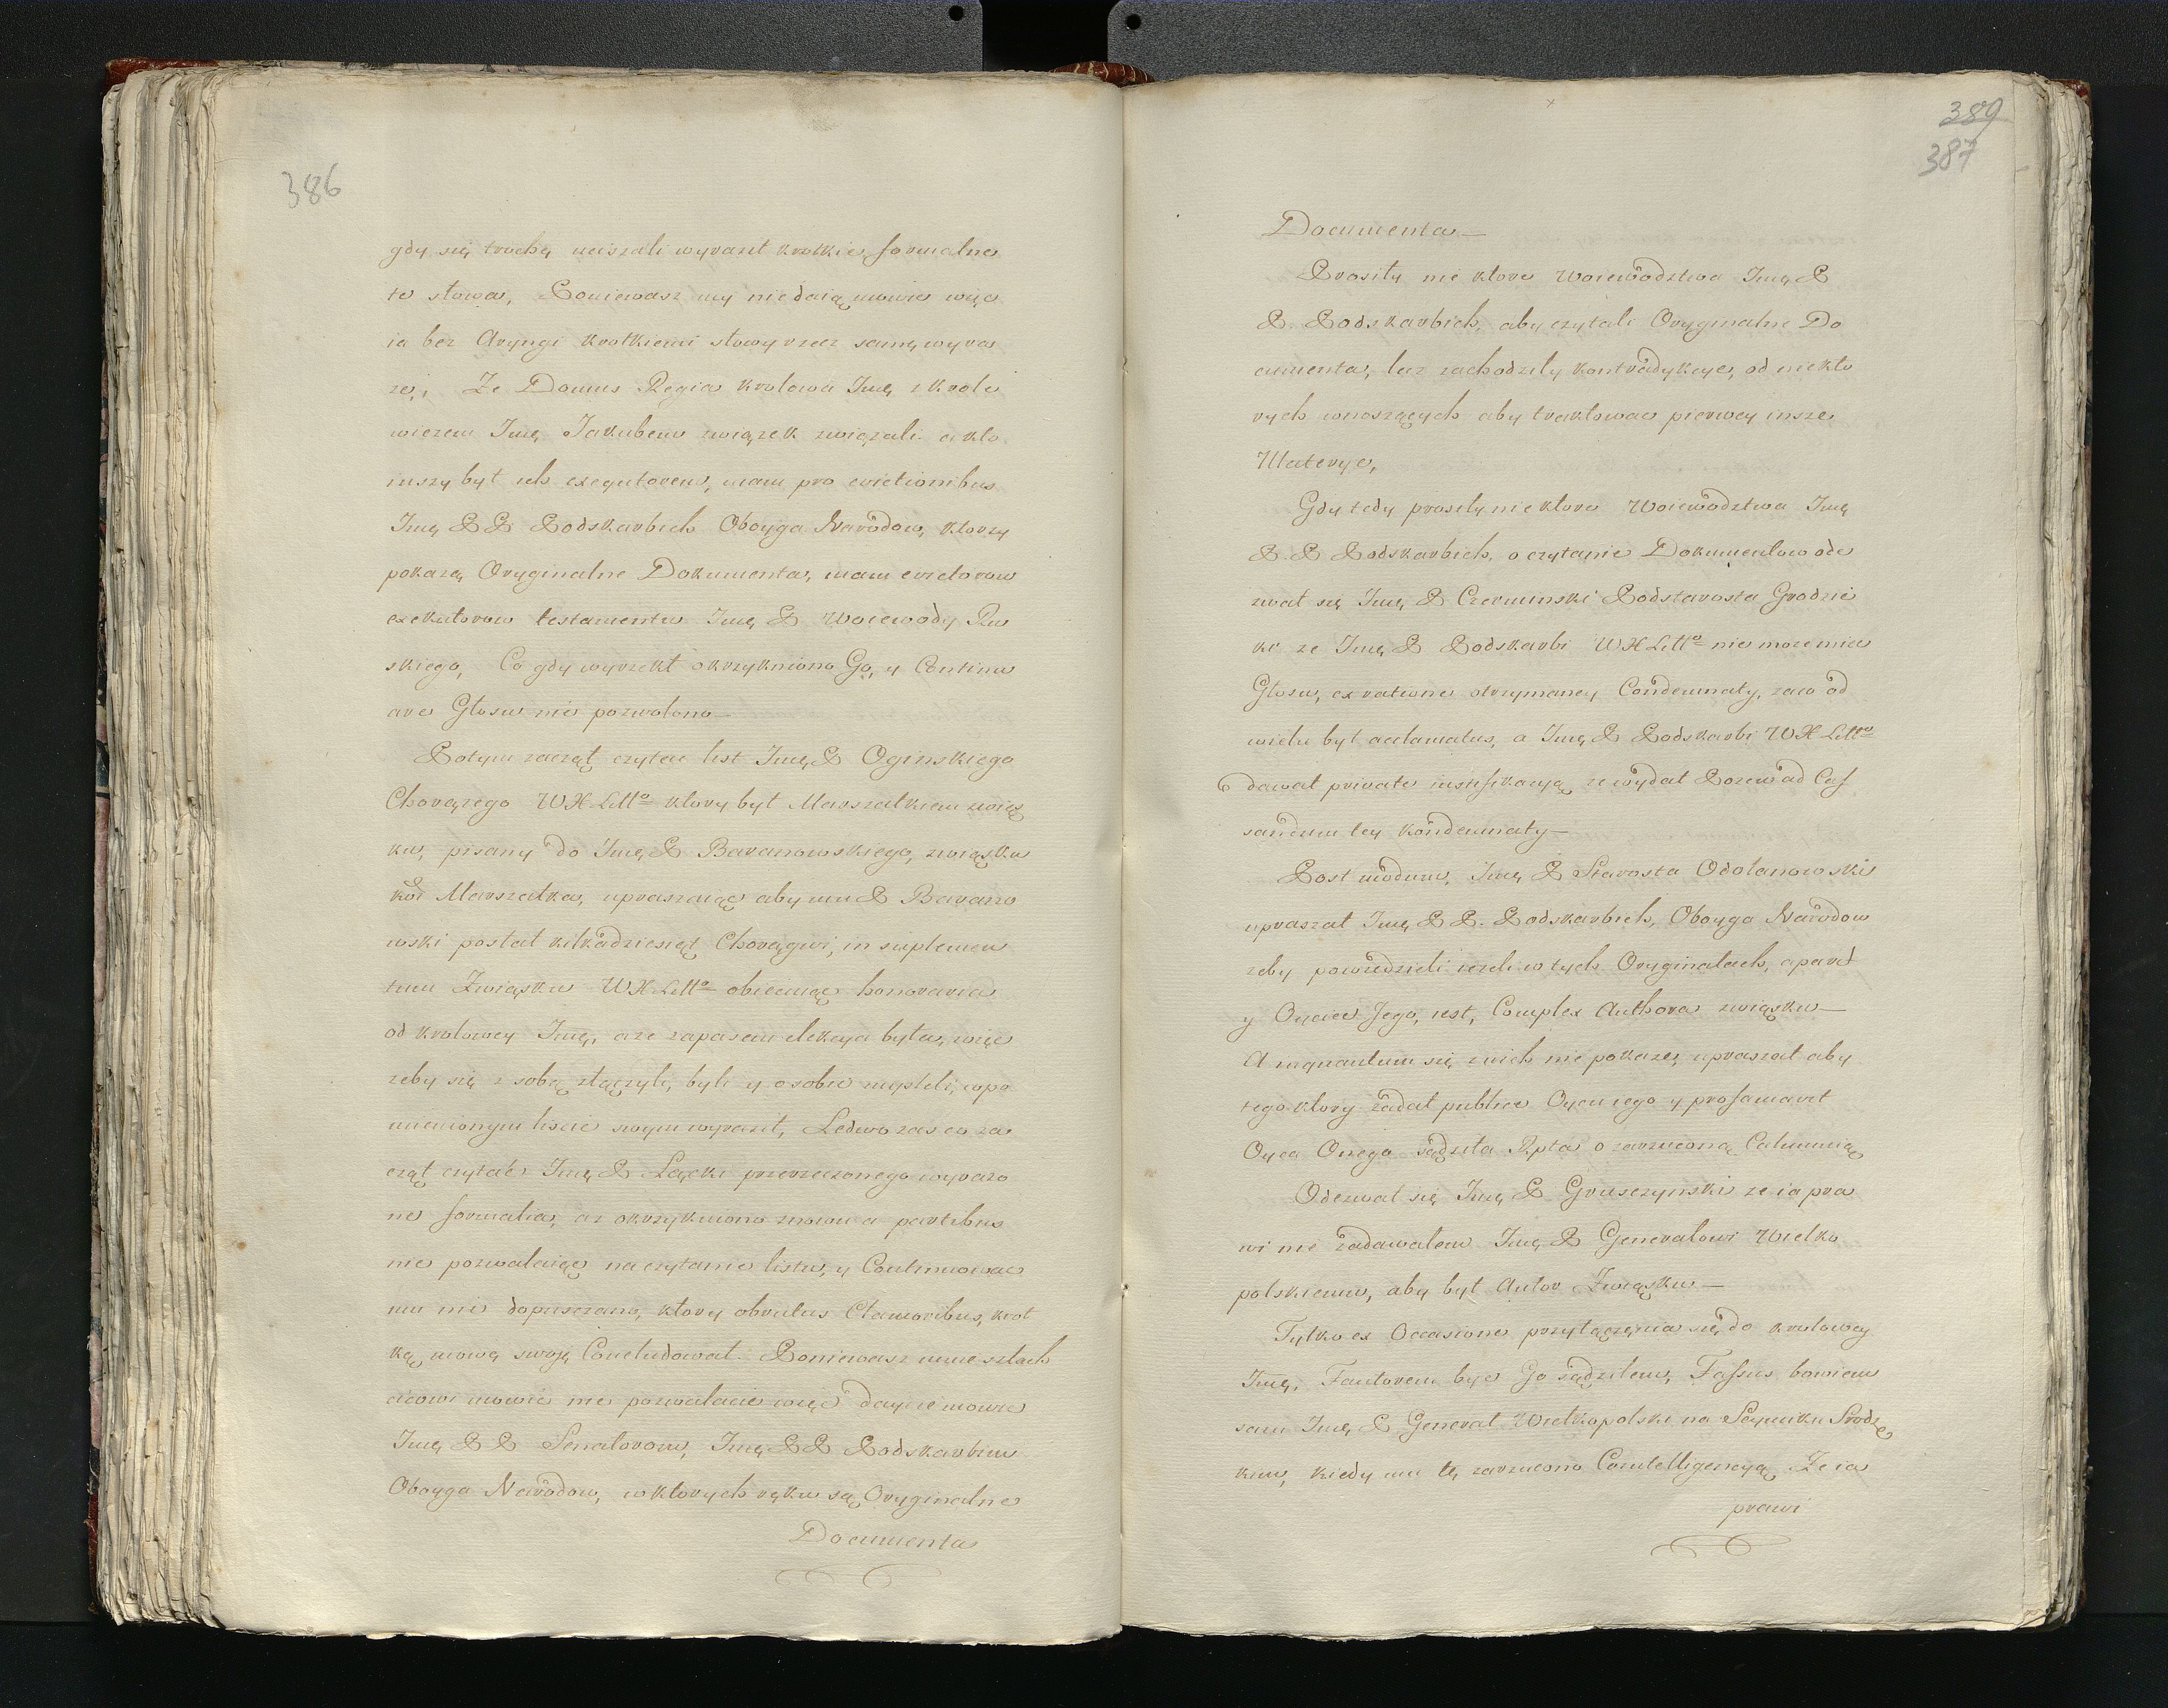 386
gdy się trochę uciszali wyraził krotkie formalne
te słowa, Poniewasz my nie daią mowic więc
ia bez Aryngi krotkiemi słowy rzecz samę wyra
zę, Ze Domus Regia krolowa Jmę z krole
wiczem Jmę Jakubem związek związali a kto
inszy był ich exequtorem, mam pro evictionibus
Jmę P P Podskarbich Oboyga Narodow, ktorzy
pokazą Oryginalne Dokumenta, mam evictorow
exekutorow testamentu Jmę P Woiewody Ru
skiego, Co gdy wyrzekł okrzykniono Go, y Continu
are Głosu nie pozwolono—
Potym zaczął czytac list Jmę P Oginskiego
Chorązego WXLitto ktory był Marszałkiem związ
ku, pisany do Jmę P Baranowskiego, związku
koo Marszałka, upraszaiąc aby mu P Barano
wski posłał kilkadziesiąt Chorągwi, in suplemen
tum Związku WXLitto obiecuiąc honoraria
od krolowey Jmę, a ze zapasem elekcya była, więc
zeby się z sobą złączyli, byli y o sobie myslili, w po
mienionym liscie swym wyraził, Ledwo zas co za
czął czytać Jmę P Łącki przerzeczonego wyrazo
ne formalia, az okrzykniono znowu a partibus
nie pozwalaiąc na czytanie listu, y Continuowac
mu nie dopuszczano, ktory obrutus Clamoribus, krot
ką mowę swoię Concludował. Poniewasz mnie szlach
cicowi mowić nie pozwalacie więc daycie mowic
Jmę P P Senatorom, Jmę P P Podskarbim
Oboyga Narodow, w ktorych ręku są Oryginalne
Documenta
389
387
Documenta—
Prosiły nie ktore Woiewodztwa Jmę P
P. Podskarbich, aby czytali Oryginalne Do
cumenta, lecz zachodziły kontradykcye, od niekto
rych wnoszących aby traktowac pierwey insze
Materye,
Gdy tedy prosiły nie ktore Woiewodztwa Jmę
P. P Podskarbich, o czytanie Dokumentow ode
zwał się Jmę P Czerminski Podstarosta Grodzic
ki ze Jmę P Podskarbi WXLitto nie moze miec
Głosu, ex ratione otrzymaney Condemnaty, zaco od
wielu był acclamatus, a Jmę P Podskarbi WXLitto
dawał private iustifikacyą ze wydał Pozew ad Cas
sandum tey kondemnaty—
Post modum, Jmę P Starosta Odolanowski
upraszał Jmę P P. Podskarbich, Oboyga Narodow
zeby powiedzieli iezeli w tych Oryginalach, aparet
y Ociec Jego, iest, Complex Authora związku—
A inquantum się z nich nie pokaze, upraszał aby
tego ktory zadał publice Oycu iego y profamavit
Oyca Onego sądziła Rpta o zarzuconą Calumnią
Odezwał się Jmę P Gruszczynski ze ia pra
wi nie zadawałem Jmę P Generałowi Wielko
polskiemu, aby był Autor Związku—
Tylko ex Occasione przyłączenia się do krolowey
Jmę, Fautorem bydz Go sądziłem, Fassus bowiem
sam Jmę P Generał Wielkopolski na Seymiku Srodz
kim, kiedy mu tę zarzucono Conntelligencyą, Ze ia
prawi